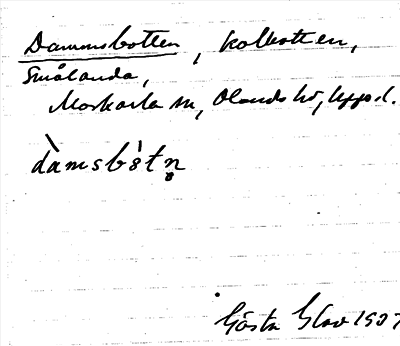 Dammsbotten, Kolbotten,
Smålanda,
Morkarla sn, Olands hd, Uppl.
dàmsbòtn̥
Gösta 1907